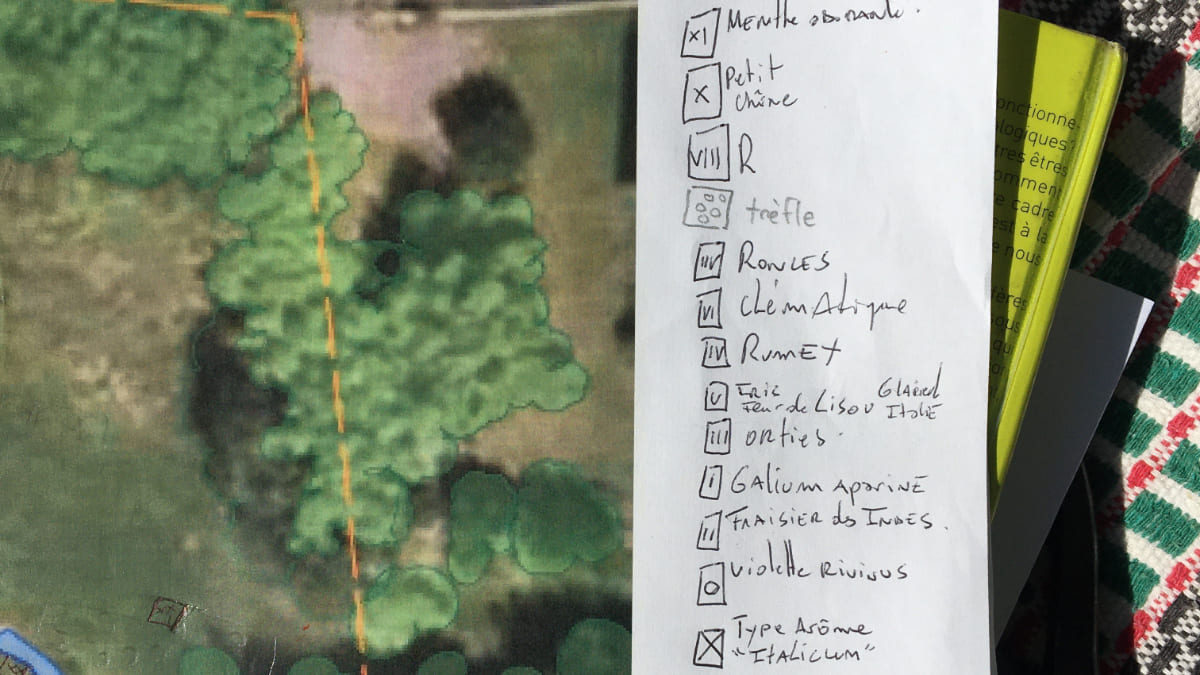 XI Menthe odorante.
X Petit
chêne
VIII R
trèfle
Ronces
VI Clématique
IV Rumex
V Iris Glaïeul
Italie
III orties.
I Galium aparine
II Fraisier des Indes.
Violette Rivinus
Type Arôme
"Italicum"
onctionne-
logiques?
tres êtres
omment
e cadre
est à la
e nous
fères
ous
qu